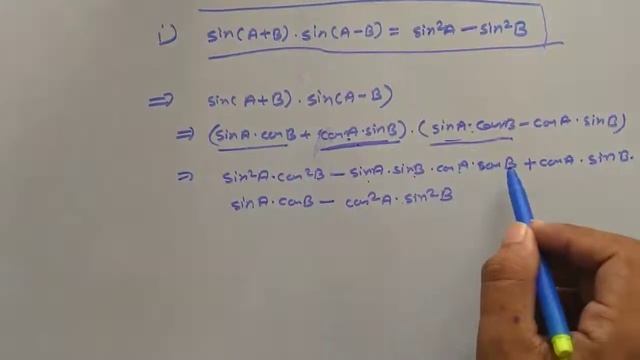 i) sin(A+B) · sin(A-B) = sin²A - sin²B
⇒ sin(A+B) · sin(A-B)
⇒ (sinA · cosB + cosA · sinB) · (sinA · cosB - cosA · sinB)
⇒ sin²A · cos²B - sinA · sinB · cosA · cosB + cosA · sinB ·
sinA · cosB - cos²A · sin²B